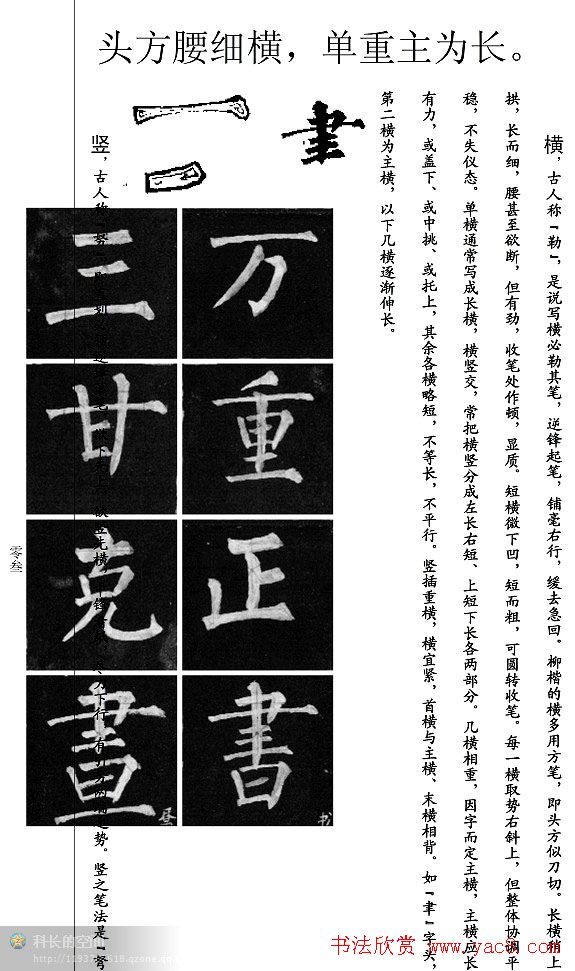 头方腰细横，单重主为长。
横，古人称「勒」，是说写横必勒其笔，逆锋起笔，铺毫右行，缓去急回。柳楷的横多用方笔，即头方似刀切。长横稍上
拱，长而细，腰甚至欲断，但有劲，收笔处作顿，显质。短横微下凹，短而粗，可圆转收笔。每一横取势右斜上，但整体协调平
稳，不失仪态。单横通常写成长横，横竖交，常把横竖分成左长右短、上短下长各两部分。几横相重，因字而定主横，主横应长
有力，或盖下、或中挑、或托上，其余各横略短，不等长，不平行。竖插重横，横宜紧，首横与主横、末横相背。如「聿」字头，
第二横为主横，以下几横逐渐伸长。
万
重
正
書
书
三
甘
克
晝
昼
竖，古人称「努
势。竖之笔法是「弩
零叁
科长的空间
书法欣赏 www.yac8.com